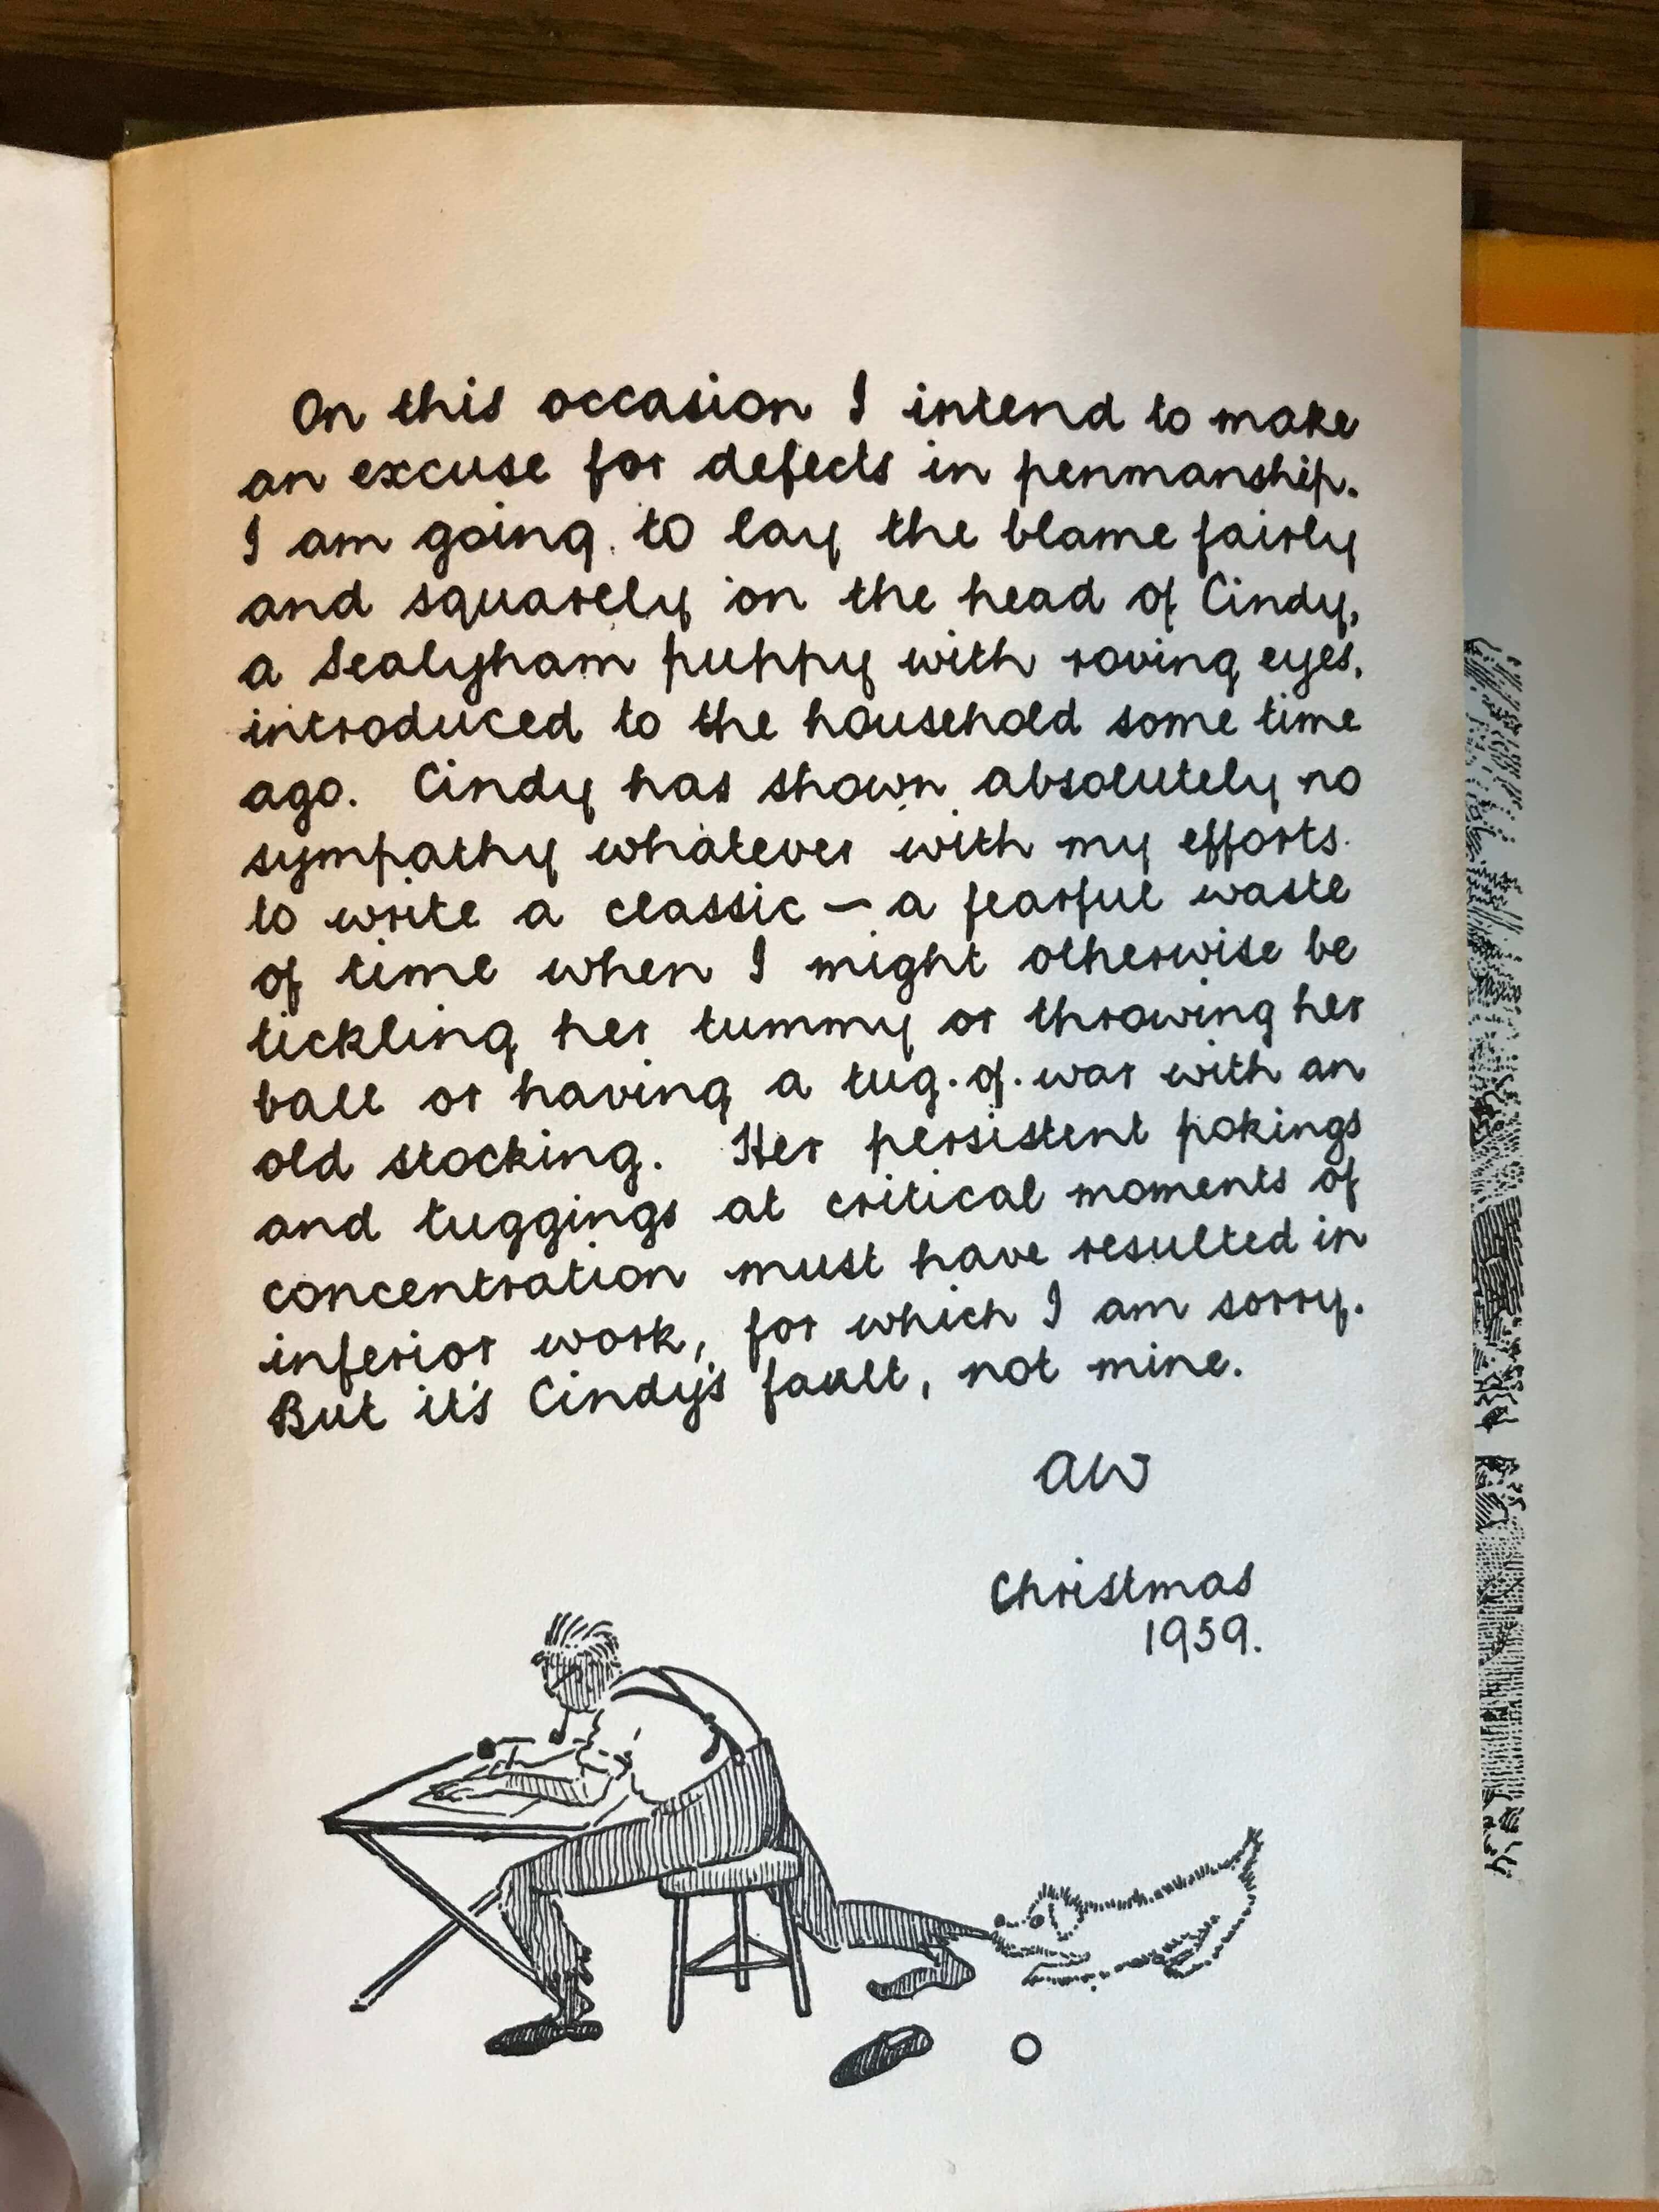 On this occasion I intend to make
an excuse for defects in penmanship.
I am going to lay the blame fairly
and squarely on the head of Cindy,
a Sealyham puppy with roving eyes,
introduced to the household some time
ago. Cindy has shown absolutely no
sympathy whatever with my efforts
to write a classic — a fearful waste
of time when I might otherwise be
tickling her tummy or throwing her
ball or having a tug.of.war with an
old stocking. Her persistent pokings
and tuggings at critical moments of
concentration must have resulted in
inferior work, for which I am sorry.
But it's Cindy's fault, not mine.
AW
Christmas
1959.